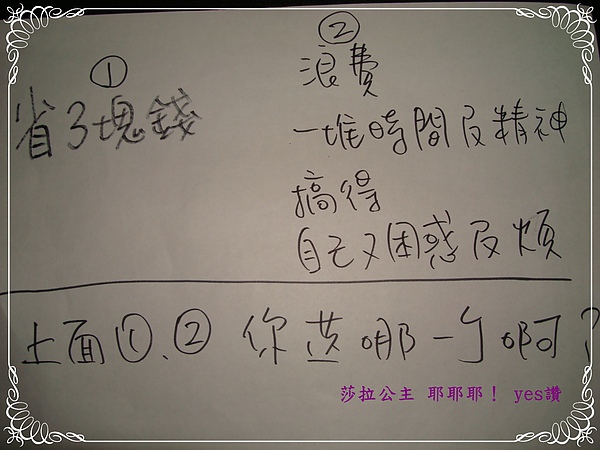 ①
省3塊錢
②
浪費
一堆時間及精神
搞得
自己又困惑及煩
上面①、② 你选哪一个啊?
莎拉公主 耶耶耶! yes讚